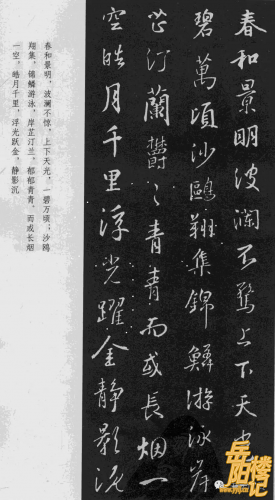 春和景明波澜不驚上下天光一
碧萬頃沙鷗翔集錦鱗游泳岸
芷汀蘭欝〻青青而或長烟一
空皓月千里浮光躍金静影沉
春和景明，波澜不惊，上下天光，一碧万顷；沙鸥
翔集，锦鳞游泳，岸芷汀兰，郁郁青青，而或长烟
一空，皓月千里，浮光跃金，静影沉
岳阳楼记